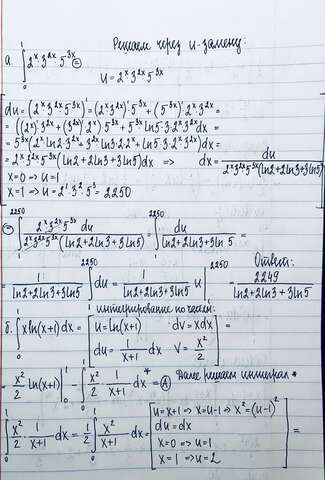 Решаем через u-замену:
а. ∫₀¹ 2ˣ·3²ˣ·5³ˣ ⊜
u = 2ˣ 3²ˣ 5³ˣ
du = (2ˣ·3²ˣ·5³ˣ)' = (2ˣ·3²ˣ)'·5³ˣ + (5³ˣ)'·2ˣ·3²ˣ =
= ((2ˣ)'·3²ˣ + (3²ˣ)'·2ˣ)·5³ˣ + 5³ˣ ln5·3·2ˣ·3²ˣ dx =
= 5³ˣ(2ˣ ln2·3²ˣ + 3²ˣ ln3·2·2ˣ + ln5·3·2ˣ·3²ˣ) dx =
= 2ˣ·3²ˣ·5³ˣ (ln2 + 2ln3 + 3ln5) dx ⇒ dx = du / 2ˣ·3²ˣ·5³ˣ (ln2 + 2ln3 + 3ln5)
x = 0 ⇒ u = 1
x = 1 ⇒ u = 2¹·3²·5³ = 2250
⊜ ∫₁²²⁵⁰ 2ˣ·3²ˣ·5³ˣ du / 2ˣ·3²ˣ·5³ˣ (ln2 + 2ln3 + 3ln5) = ∫₁²²⁵⁰ du / (ln2 + 2ln3 + 3ln5) =
Ответ:
= 1 / (ln2 + 2ln3 + 3ln5) ∫₁²²⁵⁰ du = 1 / (ln2 + 2ln3 + 3ln5) u |₁²²⁵⁰ = 2249 / (ln2 + 2ln3 + 3ln5)
интегрирование по частям:
б. ∫₀¹ x ln(x+1) dx = [u = ln(x+1) dv = x dx
du = 1/(x+1) dx v = x²/2] =
= x²/2 ln(x+1) |₀¹ − ∫₀¹ x²/2 · 1/(x+1) dx* = Ⓐ Далее решаем интеграл *
∫₀¹ x²/2 · 1/(x+1) dx = 1/2 ∫₀¹ x²/(x+1) dx = [u = x+1 ⇒ x = u−1 ⇒ x² = (u−1)²
du = dx
x = 0 ⇒ u = 1
x = 1 ⇒ u = 2] =